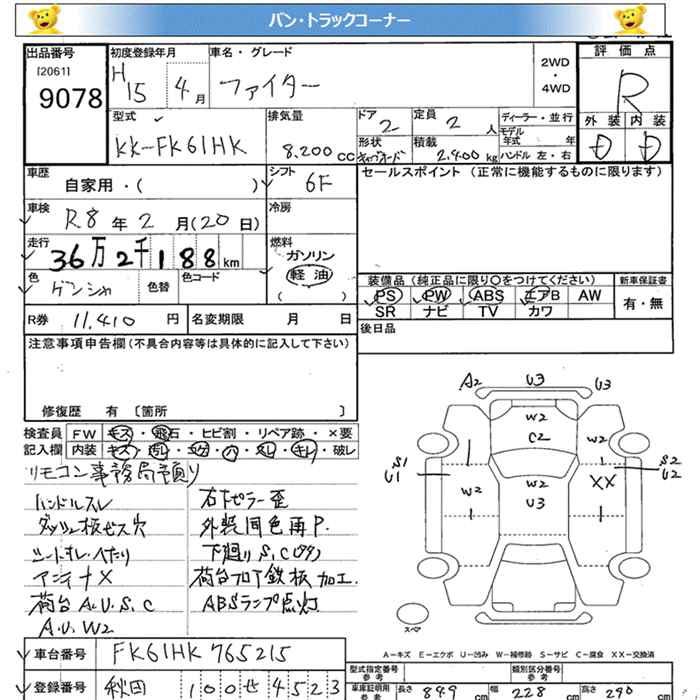 バン・トラックコーナー
出品番号 初度登録年月 車名・グレード 評価点
I20611
9078
H15 4月 ファイター
2WD
・
4WD
R
型式 排気量 ドア 定員 ディーラー・並行 外装 内装
KK-FK61HK 8.200cc 2 2人 モデル年式 年
形状 積載 ハンドル 左・右
キャブオーバー 2.900kg D D
車歴 シフト セールスポイント(正常に機能するものに限ります)
自家用・( ) 6F
車検 冷房
R8年2月(20日)
走行 燃料
36万2千188km ガソリン
軽油
( )
色 色替 色コード
ゲンシャ
装備品(純正品に限り○をつけてください) 新車保証書
PS PW ABS エアB AW 有・無
SR ナビ TV カワ
R券 11,410円 名変期限 月 日
後日品
注意事項申告欄(不具合内容等は具体的に記入して下さい)
修復歴 有〔箇所 〕
検査員 FW キズ・飛石・ヒビ割・リペア跡・×要
記入欄 内装 キズ・汚レ・コゲ・穴・スレ・キレ・破レ
リモコン事務局預り
ハンドルスレ
ダッシュ板ビス穴
シートオレ・へたり
アンテナX
荷台A.U.S.C
A.U.W2
右下ピラー歪
外装同色再P.
下廻りS.C(穴)
荷台フロア鉄板加工.
ABSランプ点灯
A2 U3 U3
W2
C2
W2
S1
U1
S2
U2
W2
W2
U3
XX
スペア
A-キズ E-エクボ U-凹み W-補修跡 S-サビ C-腐食 XX-交換済
車台番号 FK61HK 765215
登録番号 秋田 100 せ 4523
型式指定番号 参考 類別区分番号 参考
車庫証明用 参考 長さ 849cm 幅 228cm 高さ 290cm